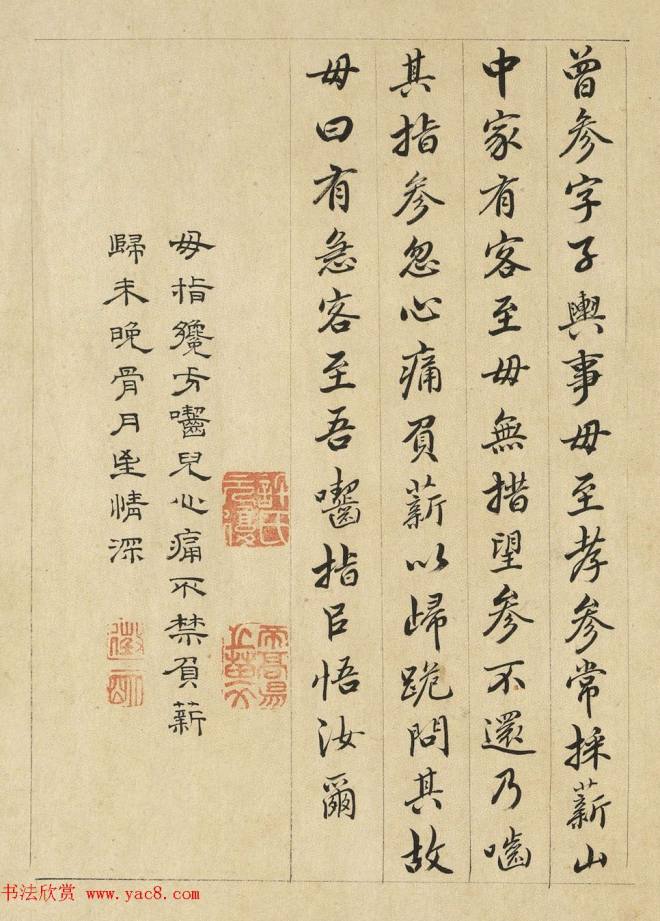 曾參字子輿事母至孝參常採薪山
中家有客至母無措望參不還乃嚙
其指參忽心痛負薪以歸跪問其故
母曰有急客至吾嚙指以悟汝爾
母指纔方嚙兒心痛不禁負薪
歸未晚骨月至情深
書法欣赏 www.yac8.com